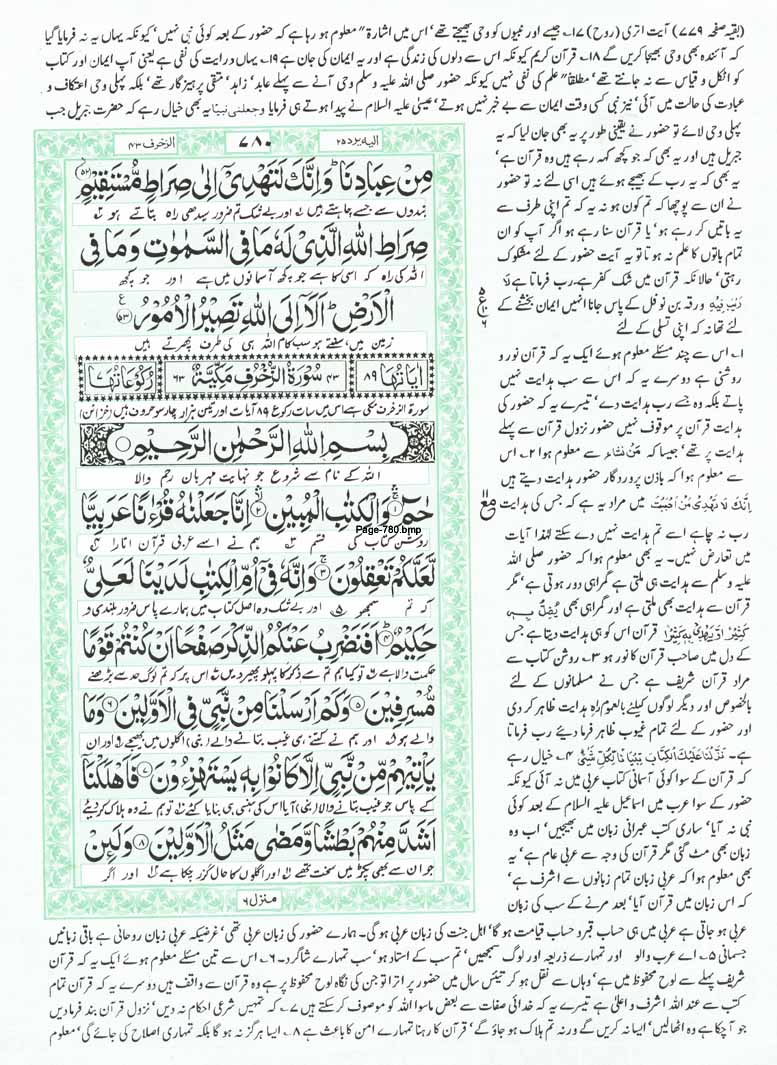 (بقیہ صفحہ ۷۷۹) آیت اتری (روح) ۱۷۔ جیسے اور نبیوں کو وحی بھیجتے تھے' اس میں اشارۃ" معلوم ہو رہا ہے کہ حضور کے بعد کوئی نبی نہیں' کیونکہ یہاں یہ نہ فرمایا گیا
کہ آئندہ بھی وحی بھیجا کریں گے ۱۸۔ قرآن کریم کیونکہ اس سے دلوں کی زندگی ہے اور یہ ایمان کی جان ہے ۱۹۔ یہاں درایت کی نفی ہے یعنی آپ ایمان اور کتاب
کو اٹکل و قیاس سے نہ جانتے تھے' مطلقاً" علم کی نفی نہیں کیونکہ حضور صلی اللہ علیہ وسلم وحی آنے سے پہلے عابد' زاہد' متقی پرہیزگار تھے' بلکہ پہلی وحی اعتکاف و
عبادت کی حالت میں آئی' نیز نبی کسی وقت ایمان سے بے خبر نہیں ہوتے' عیسیٰ علیہ السلام نے پیدا ہوتے ہی فرمایا وجعلنی نبیا یہ بھی خیال رہے کہ حضرت جبریل جب
پہلی وحی لائے تو حضور نے یقینی طور پر یہ بھی جان لیا کہ یہ
جبریل ہیں اور یہ بھی کہ جو کچھ کہہ رہے ہیں وہ قرآن ہے'
یہ بھی کہ یہ رب کے بھیجے ہوئے ہیں اسی لئے نہ تو حضور
نے ان سے پوچھا کہ تم کون ہو نہ یہ کہ تم اپنی طرف سے
یہ باتیں کر رہے ہو' یا قرآن سنا رہے ہو اگر آپ کو ان
تمام باتوں کا علم نہ ہوتا تو یہ آیت حضور کے لئے مشکوک
رہتی' حالانکہ قرآن میں شک کفر ہے۔ رب فرماتا ہے لا
ریب فیہ ورقہ بن نوفل کے پاس جانا انہیں ایمان بخشنے کے
لئے تھا نہ کہ اپنی تسلی کے لئے
۱۔ اس سے چند مسئلے معلوم ہوئے ایک یہ کہ قرآن نور و
روشنی ہے دوسرے یہ کہ اس سے سب ہدایت نہیں
پاتے بلکہ وہ جسے رب ہدایت دے' تیسرے یہ کہ حضور کی
ہدایت قرآن پر موقوف نہیں حضور نزول قرآن سے پہلے
ہدایت پر تھے' جیسا کہ من نشاء سے معلوم ہوا ۲۔ اس
سے معلوم ہوا کہ باذن پروردگار حضور ہدایت دیتے ہیں
انک لا تھدی من احببت میں مراد یہ ہے کہ جس کی ہدایت
رب نہ چاہے اسے تم ہدایت نہیں دے سکتے لہٰذا آیات
میں تعارض نہیں۔ یہ بھی معلوم ہوا کہ حضور صلی اللہ
علیہ وسلم سے ہدایت ہی ملتی ہے گمراہی دور ہوتی ہے' مگر
قرآن سے ہدایت بھی ملتی ہے اور گمراہی بھی یضل بہ
کثیرا ویھدی بہ کثیرا قرآن اس کو ہی ہدایت دیتا ہے جس
کے دل میں صاحب قرآن کا نور ہو ۳۔ روشن کتاب سے
مراد قرآن شریف ہے جس نے مسلمانوں کے لئے
بالخصوص اور دیگر لوگوں کیلئے بالعموم راہ ہدایت ظاہر کر دی
اور حضور کے لئے تمام غیوب ظاہر فرما دیئے رب فرماتا
ہے۔ نزلنا علیک الکتاب تبیانا لکل شئ ۴۔ خیال رہے
کہ قرآن کے سوا کوئی آسمانی کتاب عربی میں نہ آئی کیونکہ
حضور کے سوا عرب میں اسماعیل علیہ السلام کے بعد کوئی
نبی نہ آیا' ساری کتب عبرانی زبان میں بھیجیں' اب وہ
زبان بھی مٹ گئی مگر قرآن کی وجہ سے عربی عام ہے' یہ
بھی معلوم ہوا کہ عربی زبان تمام زبانوں سے اشرف ہے'
کہ اس زبان میں قرآن آیا' بعد مرنے کے سب کی زبان
الیہ یرد ۲۵
۷۸۰
الزخرف ۴۳
مِنْ عِبَادِنَا وَاِنَّكَ لَتَهْدِىْٓ اِلٰى صِرَاطٍ مُّسْتَقِيْمٍ ۵۲
بندوں سے جسے چاہتے ہیں اور بے شک تم ضرور سیدھی راہ بتاتے ہو
صِرَاطِ اللّٰهِ الَّذِىْ لَهٗ مَا فِى السَّمٰوٰتِ وَمَا فِى
اللہ کی راہ کہ اسی کا ہے جو کچھ آسمانوں میں ہے اور جو کچھ
الْاَرْضِ اَلَآ اِلَى اللّٰهِ تَصِيْرُ الْاُمُوْرُ ۵۳
زمین میں، سنتے ہو سب کام اللہ ہی کی طرف پھرتے ہیں
اٰيَاتُهَا ۸۹ ۴۳ سُوْرَةُ الزُّخْرُفِ مَكِّيَّةٌ ۶۳ رُكُوْعَاتُهَا
سورۃ الزخرف مکی ہے اس میں سات رکوع ۸۹ آیات اور تین ہزار چار سو حروف ہیں (خزائن)
بِسْمِ اللّٰهِ الرَّحْمٰنِ الرَّحِيْمِ
اللہ کے نام سے شروع جو نہایت مہربان رحم والا
حٰمٓ ۱ وَالْكِتٰبِ الْمُبِيْنِ ۲ اِنَّا جَعَلْنٰهُ قُرْءٰنًا عَرَبِيًّا
Page-780.bmp
روشن کتاب کی قسم ہم نے اسے عربی قرآن اتارا
لَّعَلَّكُمْ تَعْقِلُوْنَ ۳ وَاِنَّهٗ فِىْٓ اُمِّ الْكِتٰبِ لَدَيْنَا لَعَلِىٌّ
کہ تم سمجھو اور بے شک وہ اصل کتاب میں ہمارے پاس ضرور بلندی و
حَكِيْمٌ ۴ اَفَنَضْرِبُ عَنْكُمُ الذِّكْرَ صَفْحًا اَنْ كُنْتُمْ قَوْمًا
حکمت والا ہے تو کیا ہم تم سے ذکر کا پہلو پھیر دیں اس پر کہ تم لوگ حد سے بڑھنے
مُّسْرِفِيْنَ ۵ وَكَمْ اَرْسَلْنَا مِنْ نَّبِىٍّ فِى الْاَوَّلِيْنَ ۶ وَمَا
والے ہو اور ہم نے کتنے ہی غیب بتانے والے (نبی) اگلوں میں بھیجے اور ان
يَاْتِيْهِمْ مِّنْ نَّبِىٍّ اِلَّا كَانُوْا بِهٖ يَسْتَهْزِءُوْنَ ۷ فَاَهْلَكْنَآ
کے پاس جو غیب بتانے والا (نبی) آیا اس کی ہنسی ہی بنایا کئے تو ہم نے وہ ہلاک کر دیئے
اَشَدَّ مِنْهُمْ بَطْشًا وَّمَضٰى مَثَلُ الْاَوَّلِيْنَ ۸ وَلَئِنْ
جو ان سے بھی پکڑ میں سخت تھے اور اگلوں کا حال گزر چکا ہے اور اگر
منزل ۶
عربی ہو جاتی ہے عربی میں ہی حساب قبر و حساب قیامت ہو گا' اہل جنت کی زبان عربی ہو گی۔ ہمارے حضور کی زبان عربی تھی' غرضیکہ عربی زبان روحانی ہے باقی زبانیں
جسمانی ۵۔ اے عرب والو اور تمہارے ذریعہ اور لوگ سمجھیں' تم سب کے استاد ہو' سب تمہارے شاگرد۔ ۶۔ اس سے تین مسئلے معلوم ہوئے ایک یہ کہ قرآن
شریف پہلے سے لوح محفوظ میں ہے' وہاں سے نقل ہو کر تیئس سال میں حضور پر اترا تو جن کی نگاہ لوح محفوظ پر ہے وہ قرآن سے واقف ہیں دوسرے یہ کہ قرآن تمام
کتب سے عند اللہ اشرف و اعلیٰ ہے تیسرے یہ کہ خدائی صفات سے بعض ماسوا اللہ کو موصوف کر سکتے ہیں ۷۔ کہ تمہیں شرعی احکام نہ دیں' نزول قرآن بند فرما دیں
جو آ چکا ہے وہ اٹھا لیں' ایسا نہ کریں گے ورنہ تم ہلاک ہو جاؤ گے' قرآن کا رہنا تمہارے امن کا باعث ہے ۸۔ ایسا ہرگز نہ ہو گا بلکہ تمہاری اصلاح کی جائے گی' معلوم